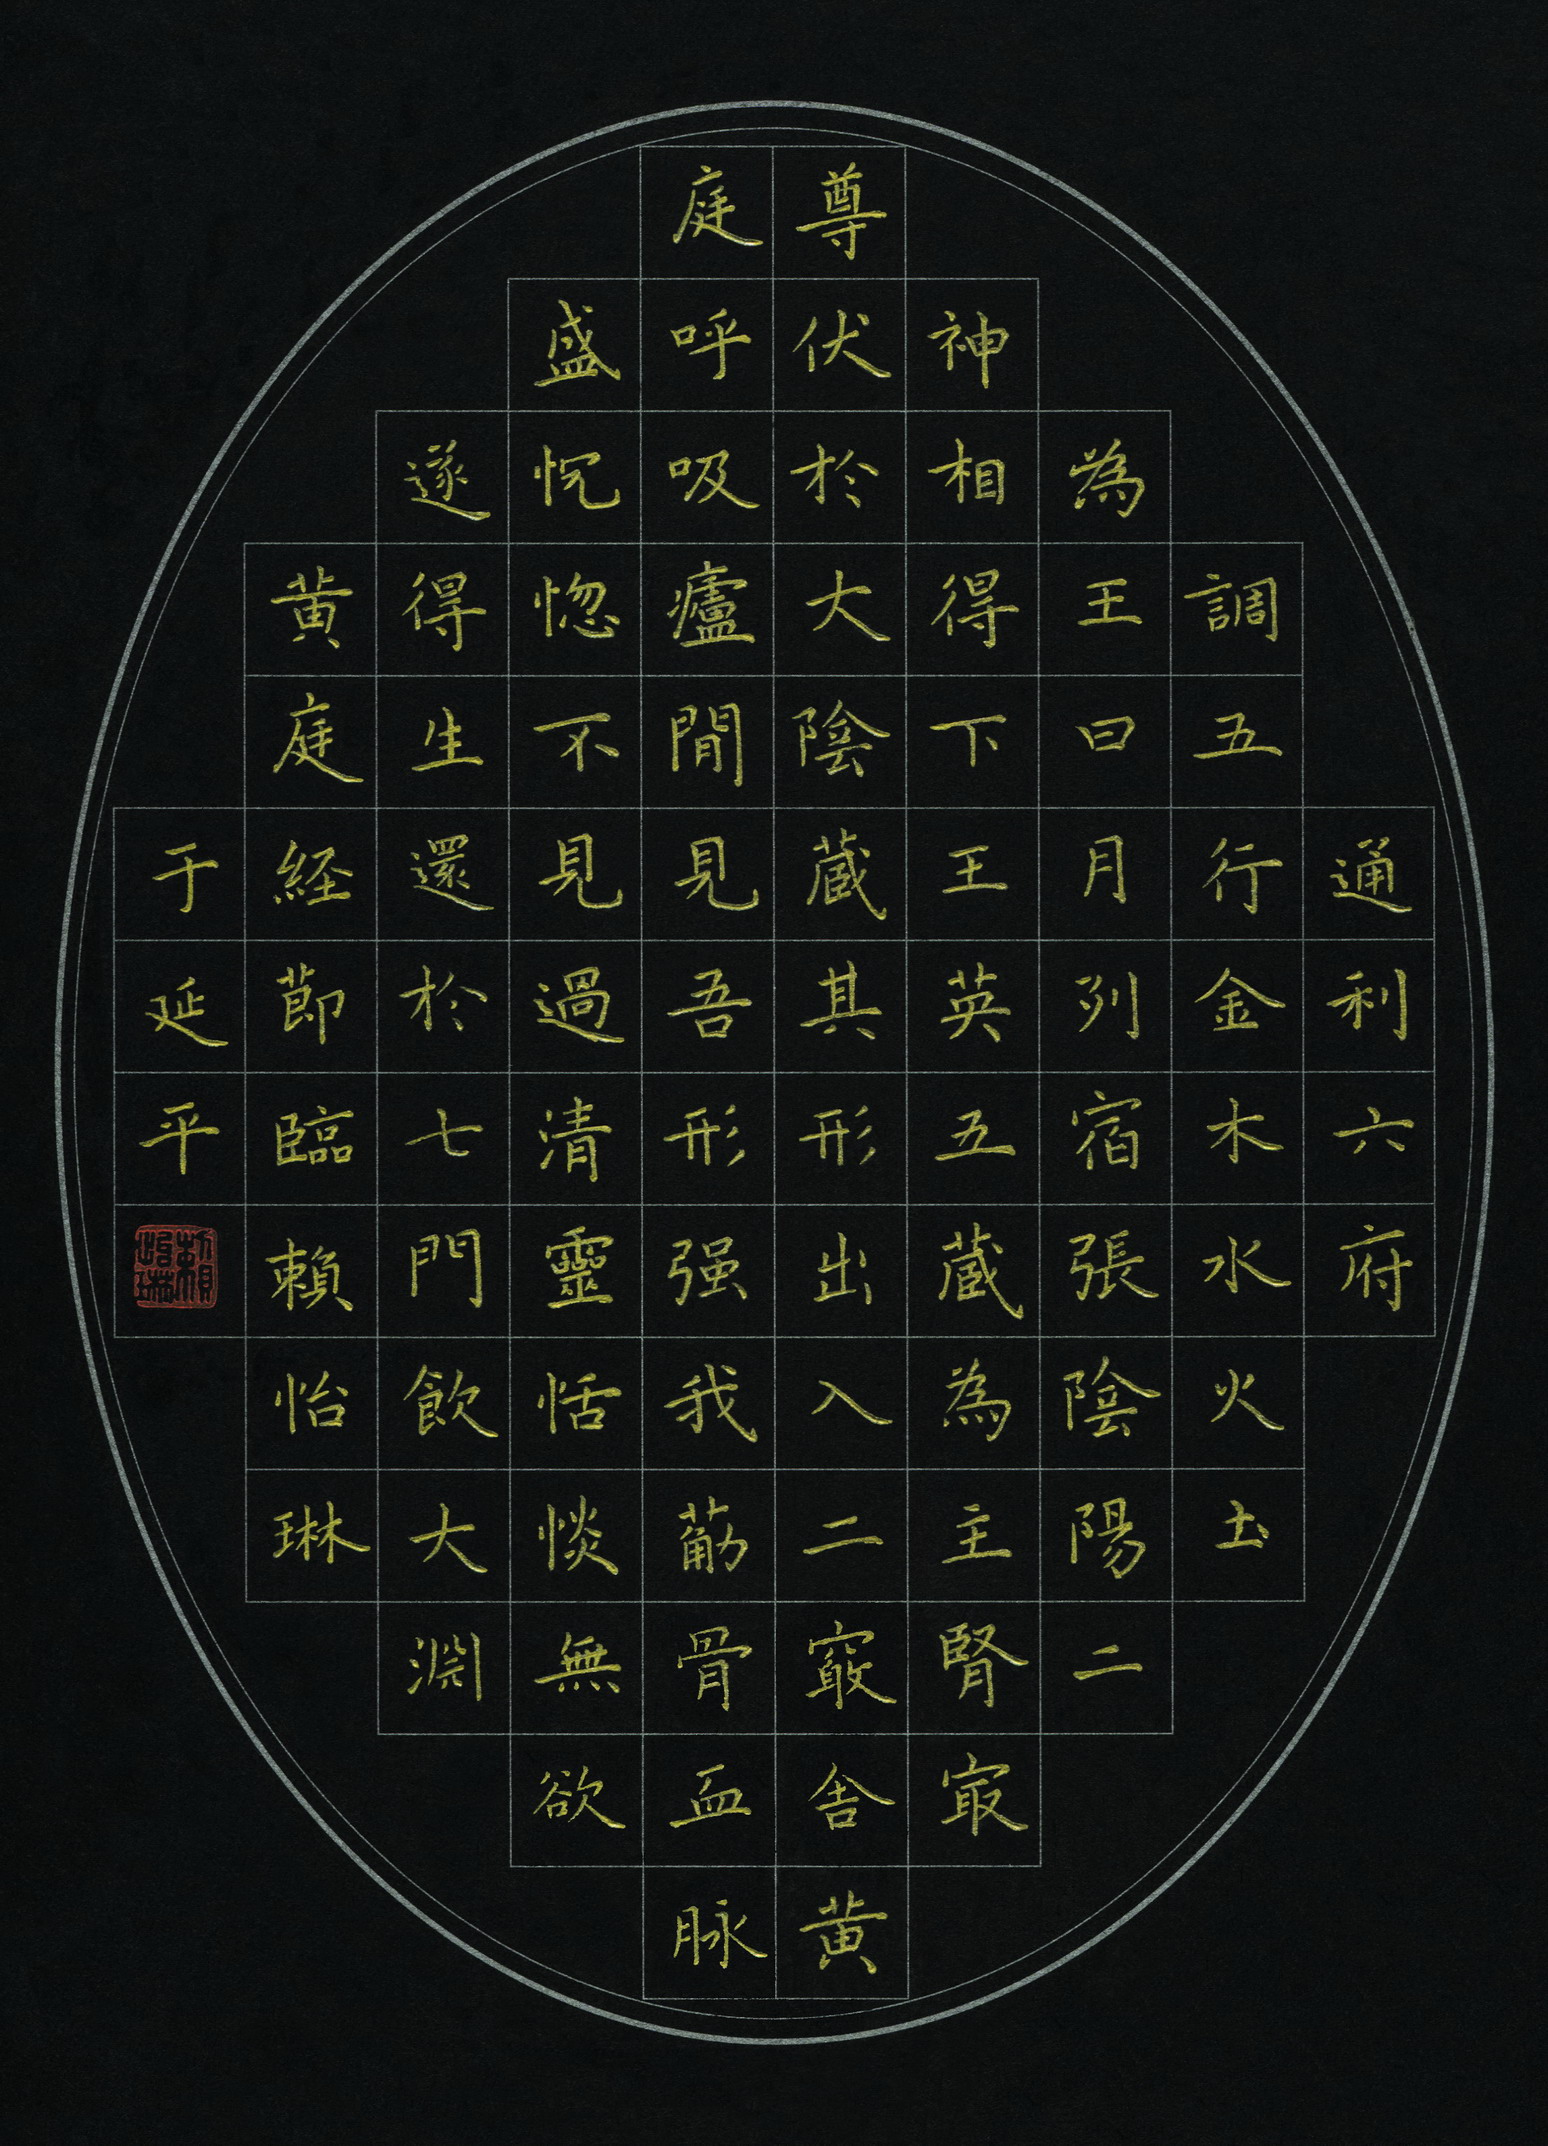 通利六府
調五行金木水火土
為王日月列宿張陰陽二
神相得下王英五蔵為主腎㝡
尊伏於大陰蔵其形出入二竅舎黄
庭呼吸廬間見吾形强我筋骨血脉
盛怳惚不見過清靈恬惔無欲
遂得生還於七門飲大淵
黄庭経節臨賴怡琳
于延平
賴怡琳